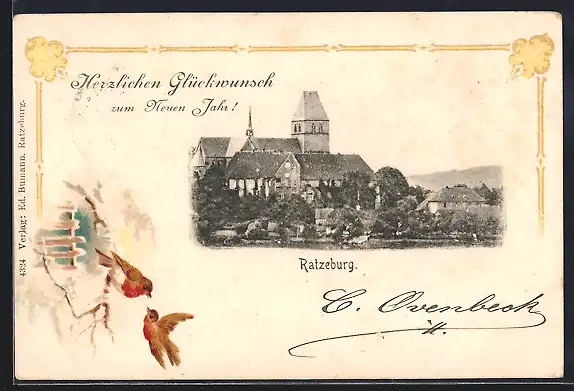 Herzlichen Glückwunsch
zum Neuen Jahr!
4324 Verlag: Ed. Bumann, Ratzeburg.
Ratzeburg.
C. Ovenbeck